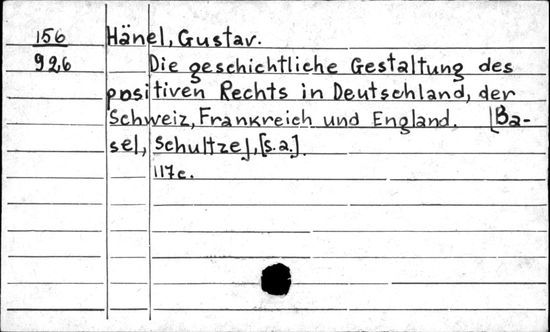 156 Hänel, Gustav.
926 Die geschichtliche Gestaltung des
positiven Rechts in Deutschland, der
Schweiz, Frankreich und England. [Ba-
sel, Schultze], [s.a.].
117c.